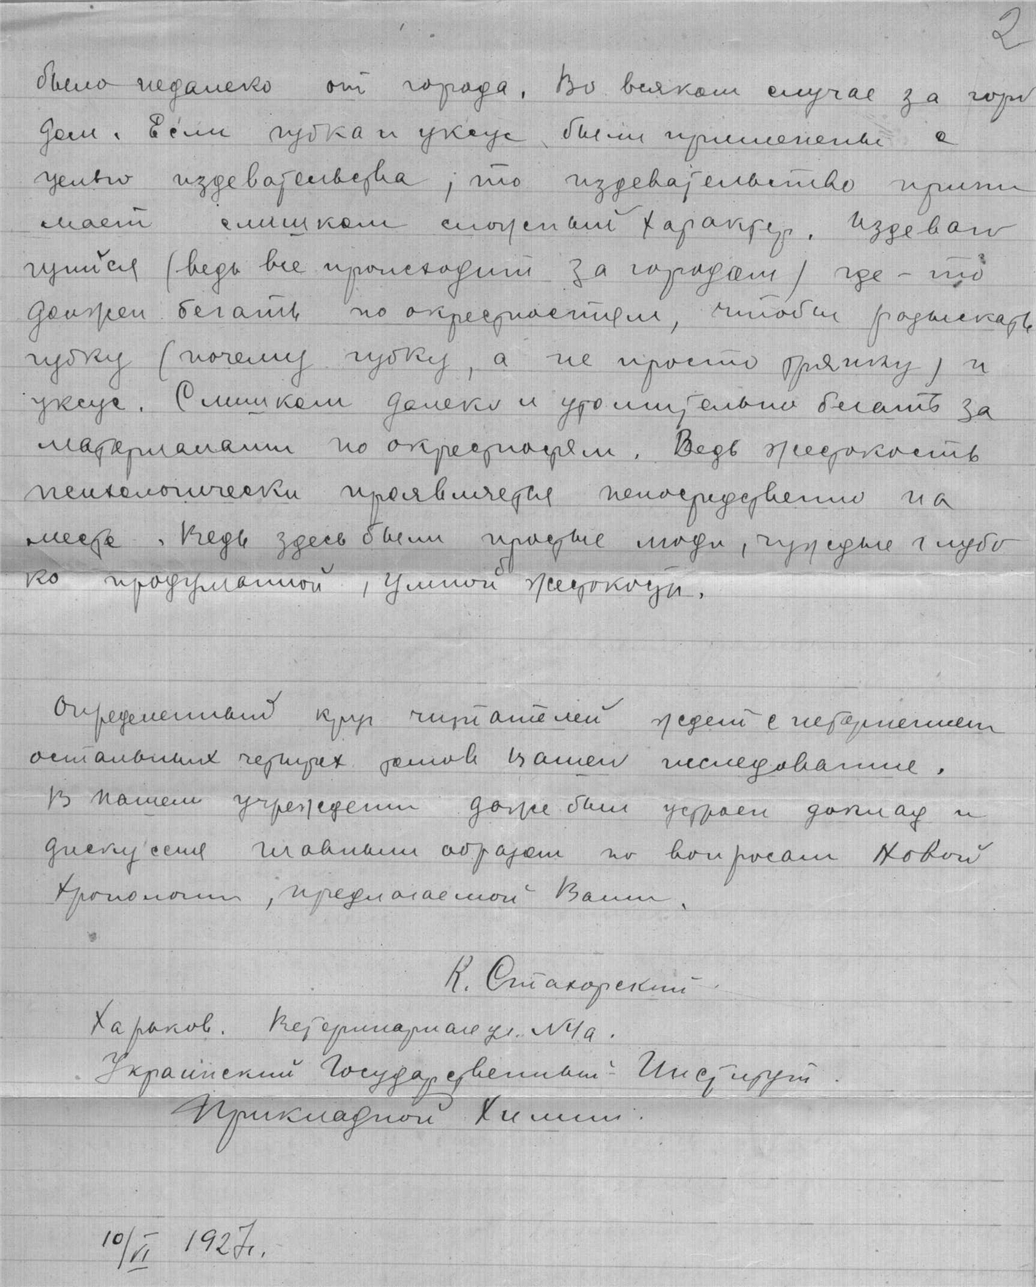 2
было недалеко от города. Во всяком случае за горо
дом. Если губка и уксус были применены с
целью издевательства, то издевательство прини
мает слишком сложный характер. Издеваю
щийся (ведь все происходит за городом) где-то
должен бегать по окрестностям, чтобы разыскать
губку (почему губку, а не просто тряпку) и
уксус. Слишком далеко и утомительно бегать за
материалами по окрестностям. Ведь жестокость
психологически проявляется непосредственно на
месте. Ведь здесь были простые люди, чуждые глубо
ко продуманной, умной жестокости.
Определенный круг читателей ждет с нетерпением
остальных четырех томов Вашего исследования.
В нашем учреждении даже был устроен доклад и
дискуссия главным образом по вопросам Новой
Хронологии, предлагаемой Вами.
К. Стахорский
Харьков. Ветеринарная ул. №4а.
Украинский Государственный Институт
Прикладной Химии.
10/VI 1927г.